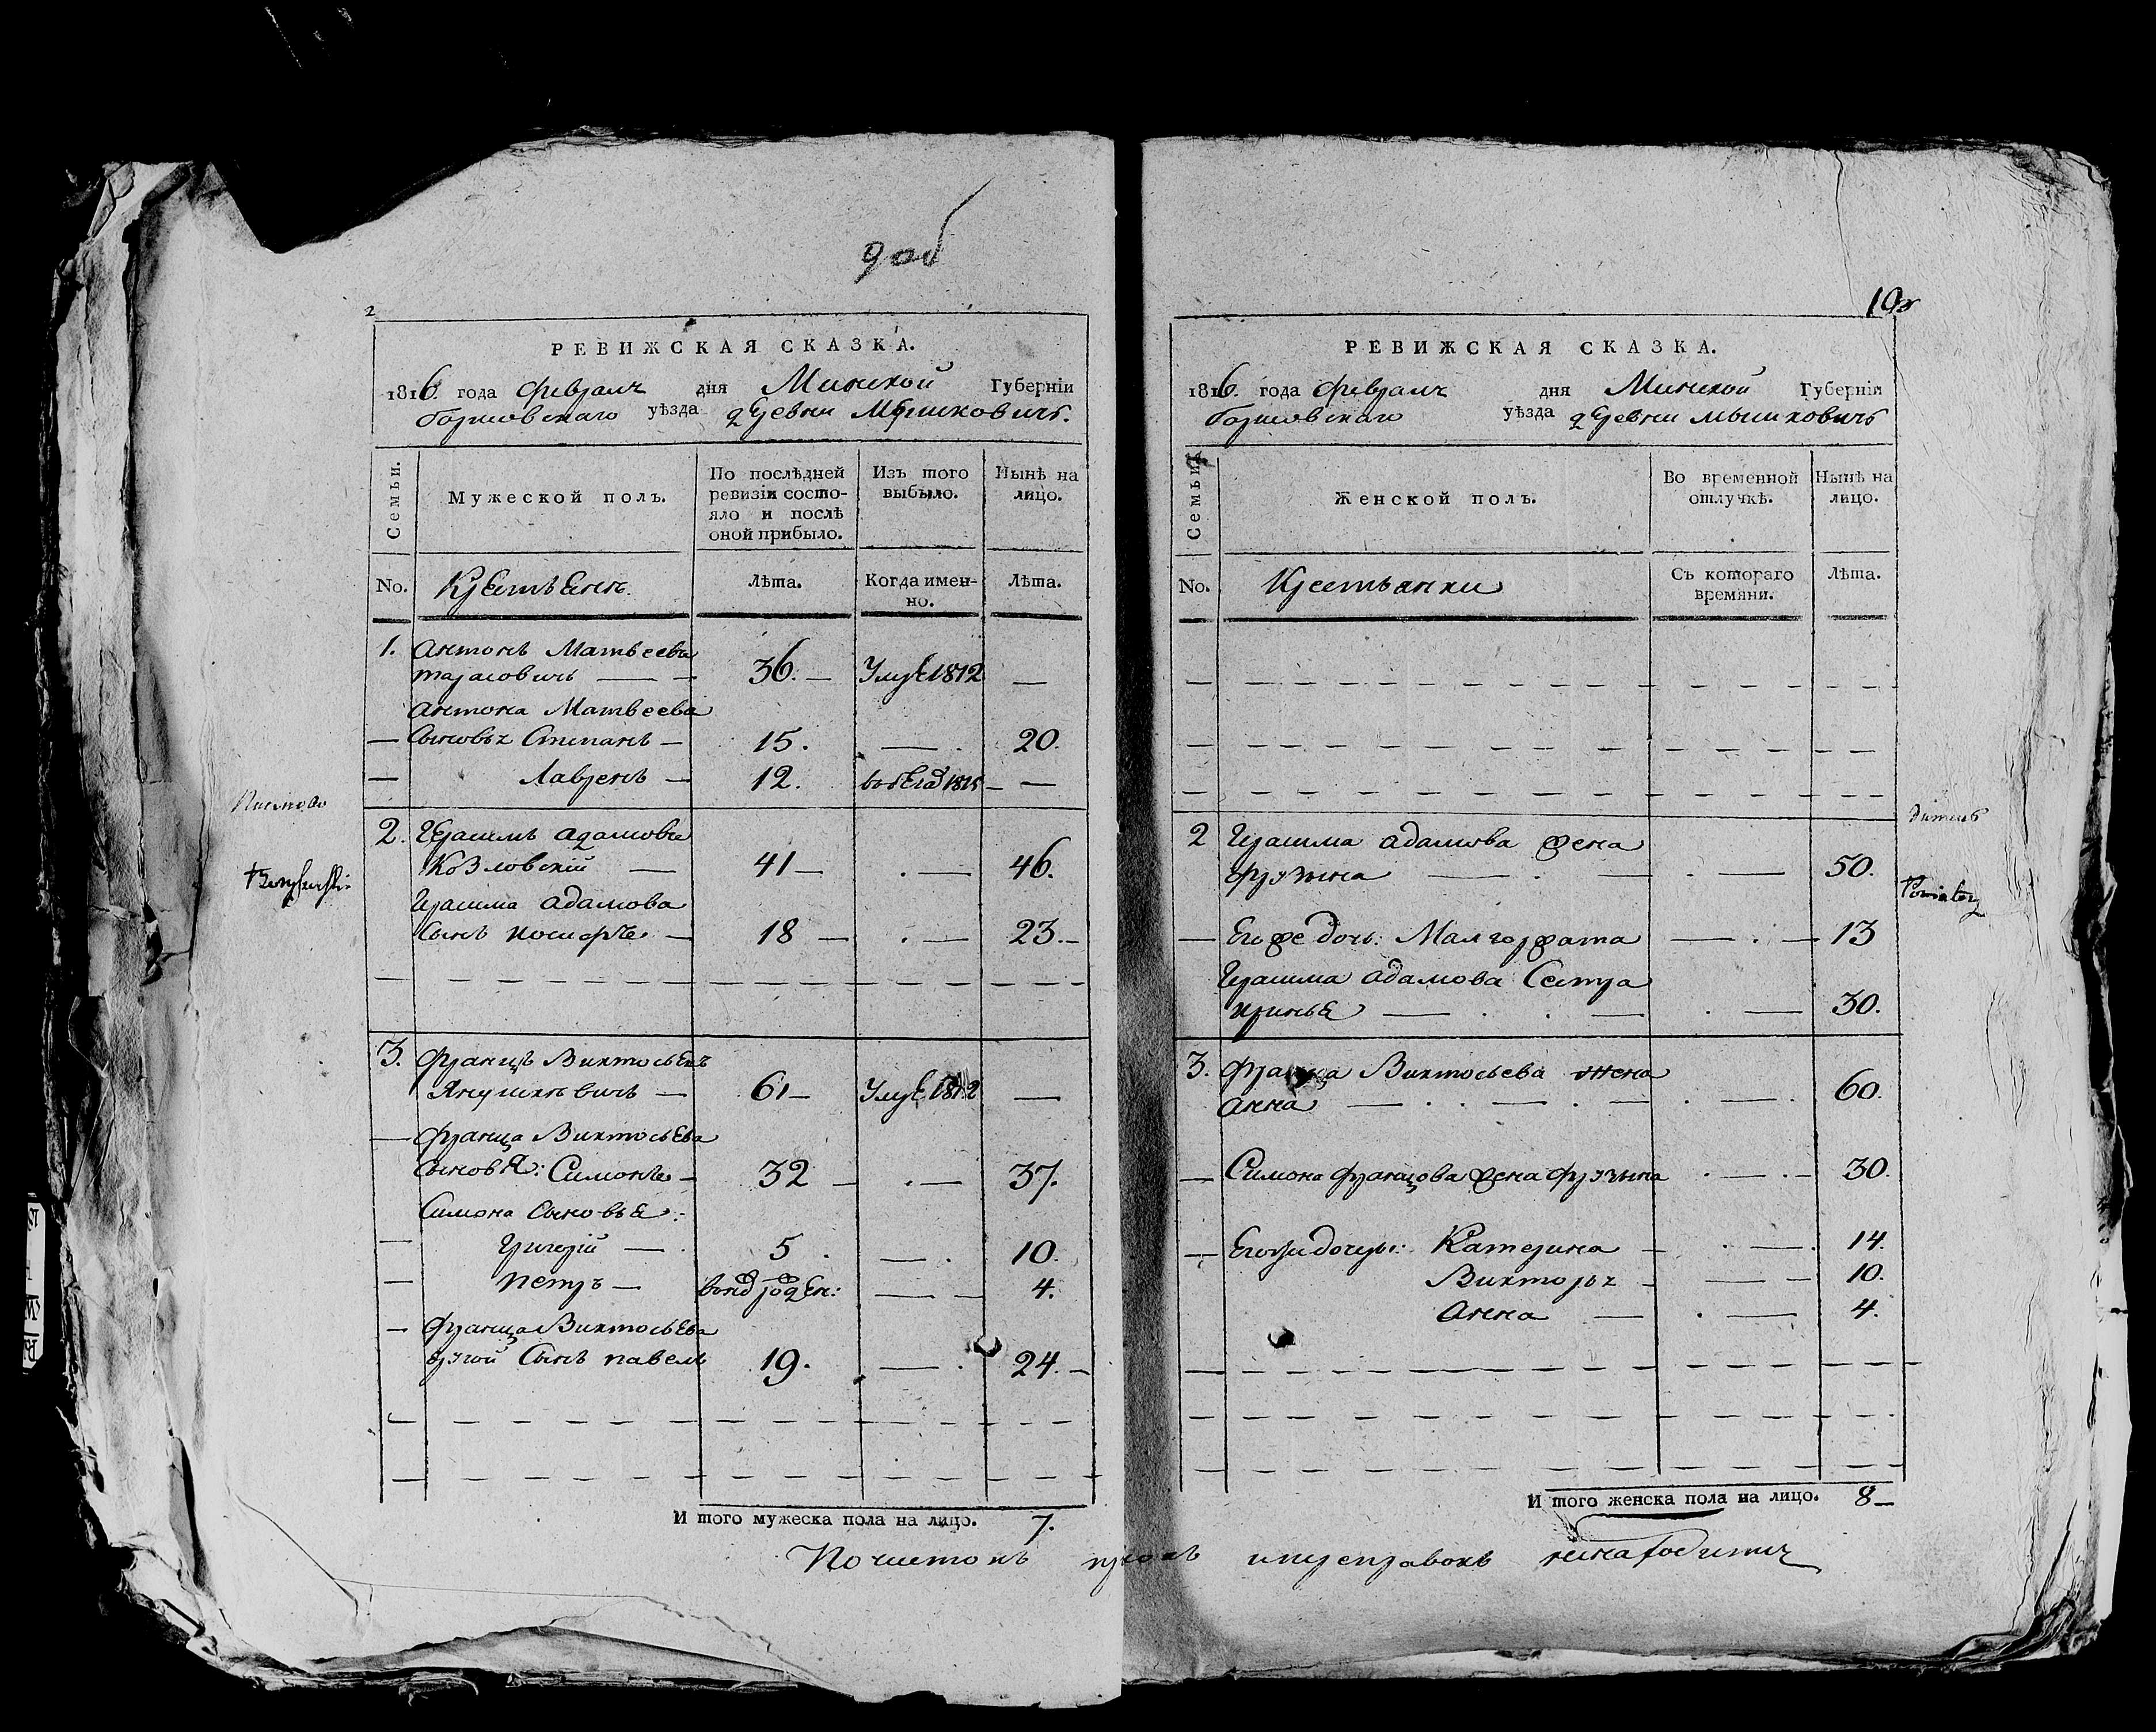 9 об
2
РЕВИЖСКАЯ СКАЗКА.
1816. года февраля дня Минской Губерніи
Борисовскаго уѣзда деревни Мышковичъ.
Семьи.
Мужеской полъ.
По послѣдней ревизіи состо-
яло и послѣ оной прибыло.
Изъ того выбыло.
Нынѣ на лицо.
No.
Крестьяне
Лѣта.
Когда имен-
но.
Лѣта.
1. Антонъ Матвеевъ
тарасовичь — 36. — Умре 1812 —
Антона Матвеева
— Сыновья Степанъ — 15. — 20.
— Лавренъ — 12. 1815 — —
2. Герасимъ адамовъ
Козловскій — 41 — . — 46.
Герасима адамова
Сынъ иосифъ — 18 — . — 23. —
3. францъ Викторьевъ
Янушкевичь — 61 — Умре 1812 —
— франца Викторьева
Сыновья: Симонъ — 32 — . — 37.
Симона Сыновья:
— Григорій — 5 . — . 10.
— петръ — рожден: — 4.
— франца Викторьева
другой Сынъ павелъ 19. — . 24. —
И того мужеска пола на лицо. 7.
10
РЕВИЖСКАЯ СКАЗКА.
1816. года февраля дня Минской Губерніи
Борисовскаго уѣзда деревни мышковичъ
Семьи
Женской полъ.
Во временной отлучкѣ.
Нынѣ на лицо.
No.
Крестьянки
Съ котораго
времяни.
Лѣта.
2 Герасима адамова жена
фрузына — . — . — 50.
— Его же дочь: Малгоржата — . — 13
Герасима адамова Сестра
Крин­ья — . . — . — 30.
3. франца Викторьева жена
анна — . . — . — . — . 60.
— Симона францова жена фрузына . — . — 30.
— Егоже дочеры: Катерина — . — . 14.
Викторья — — — 10.
анна — . — 4.
И того женска пола на лицо. 8 —